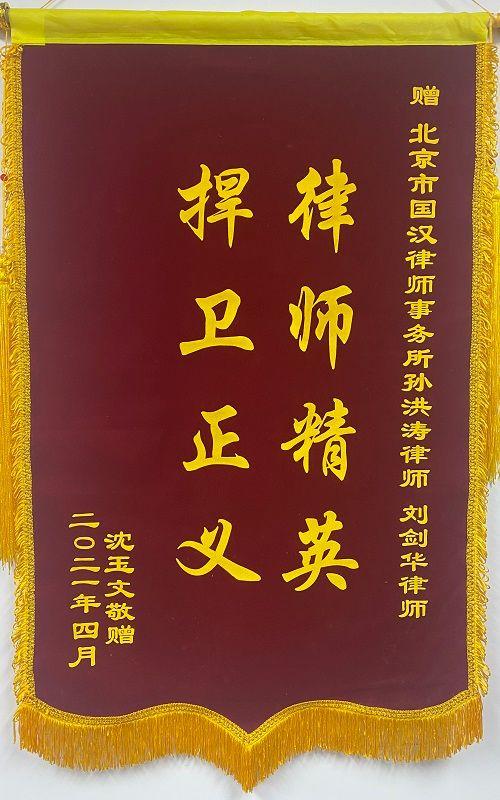 赠 北京市国汉律师事务所孙洪涛律师 刘剑华律师
律师精英
捍卫正义
沈玉文敬赠
二〇二一年四月